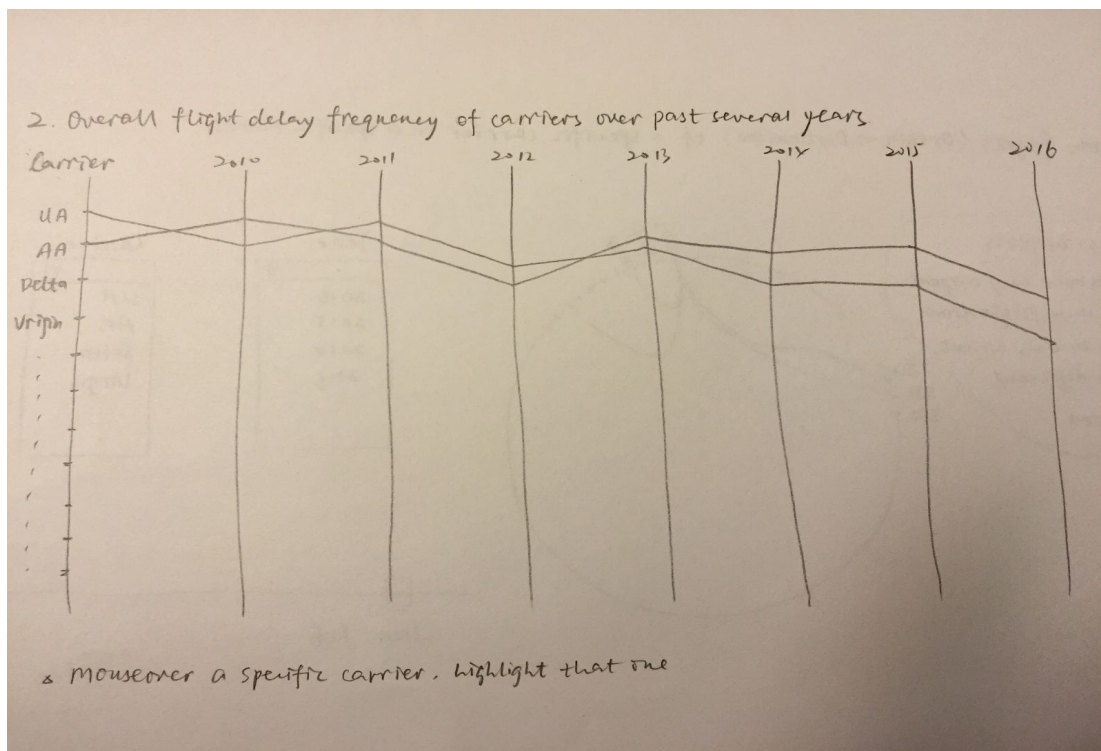 2. Overall flight delay frequency of carriers over past several years
Carrier 2010 2011 2012 2013 2014 2015 2016
UA
AA
Delta
Vrigin
* mouseover a specific carrier. highlight that one